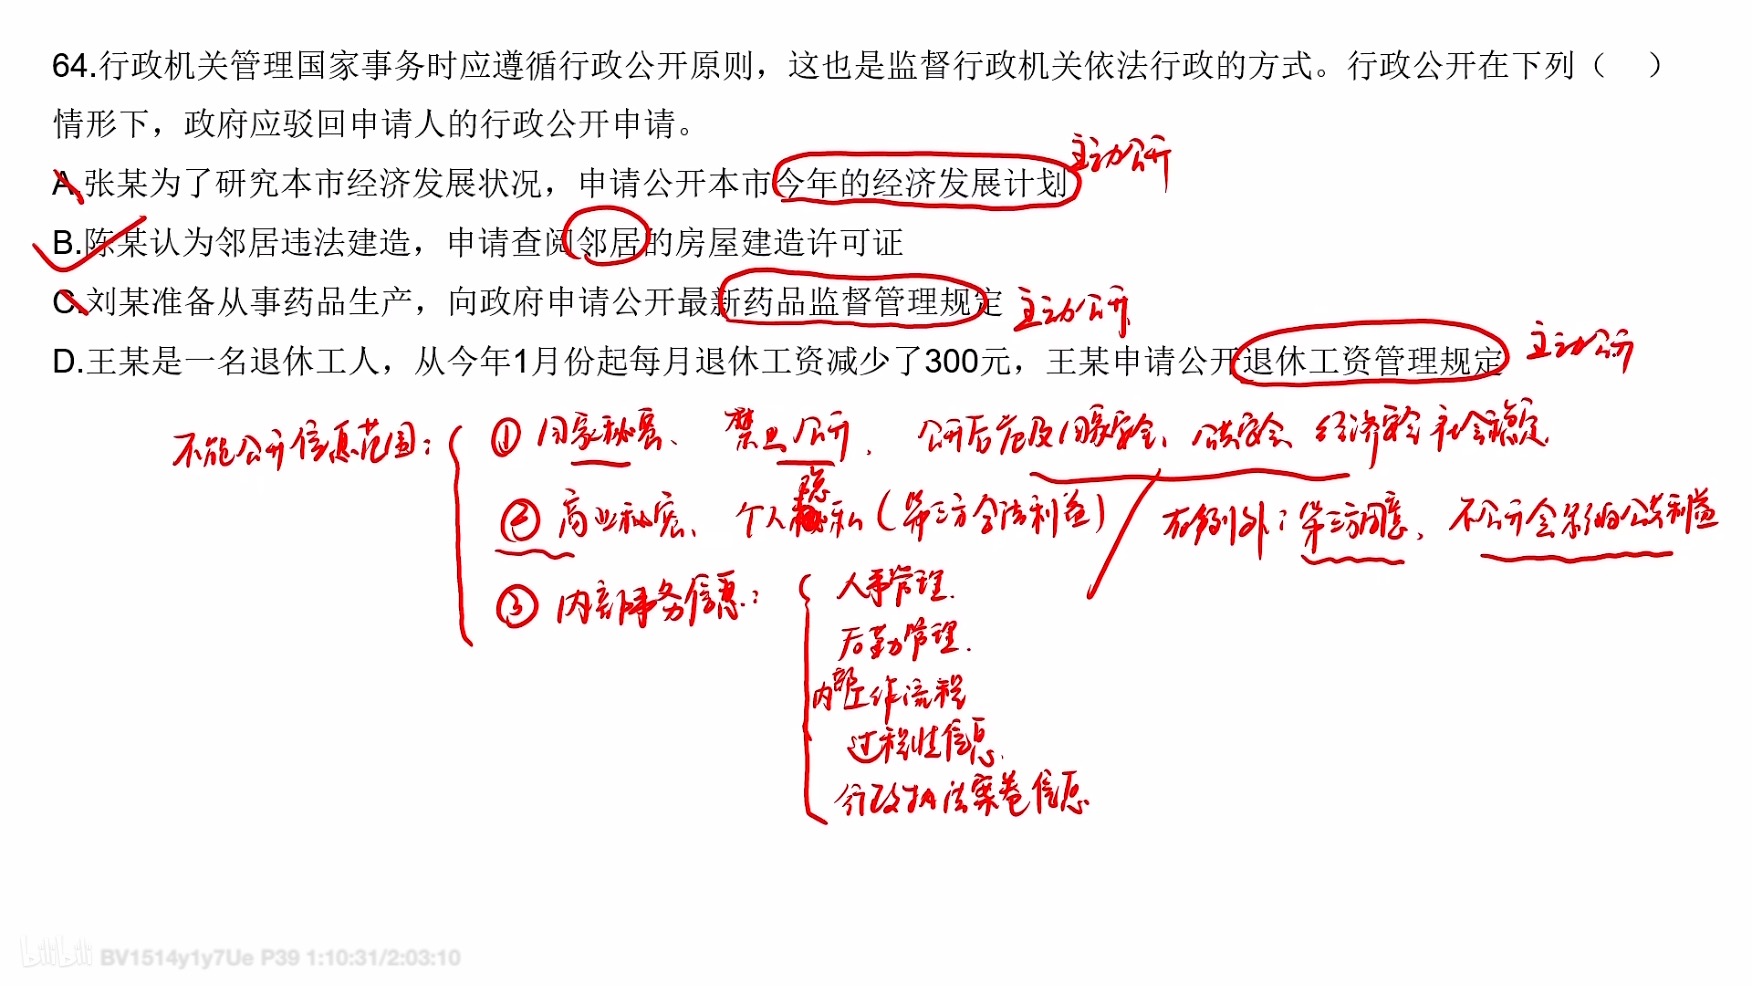 64.行政机关管理国家事务时应遵循行政公开原则，这也是监督行政机关依法行政的方式。行政公开在下列（　）
情形下，政府应驳回申请人的行政公开申请。
主动公开
A.张某为了研究本市经济发展状况，申请公开本市今年的经济发展计划
B.陈某认为邻居违法建造，申请查阅邻居的房屋建造许可证
C.刘某准备从事药品生产，向政府申请公开最新药品监督管理规定 主动公开
D.王某是一名退休工人，从今年1月份起每月退休工资减少了300元，王某申请公开退休工资管理规定 主动公开
不能公开信息范围：
① 国家秘密、禁止公开，公开后危及国家安全、公共安全、经济安全、社会稳定
② 商业秘密、个人隐私（第三方合法利益） 有例外：第三方同意，不公开会影响公共利益
③ 内部事务信息：
人事管理.
后勤管理.
内部工作流程
过程性信息.
行政执法案卷信息
bilibili BV1514y1y7Ue P39 1:10:31/2:03:10